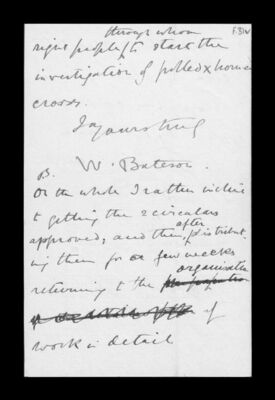 through whom
right people, to start the
investigation of polled x horned
crosses.
Yours truly
W. Bateson.
B.
On the whole I rather incline
to getting the 2 circulars
after
approved, and then, distribut-
ing them for a few weeks
organisation
returning to the
of
work in detail